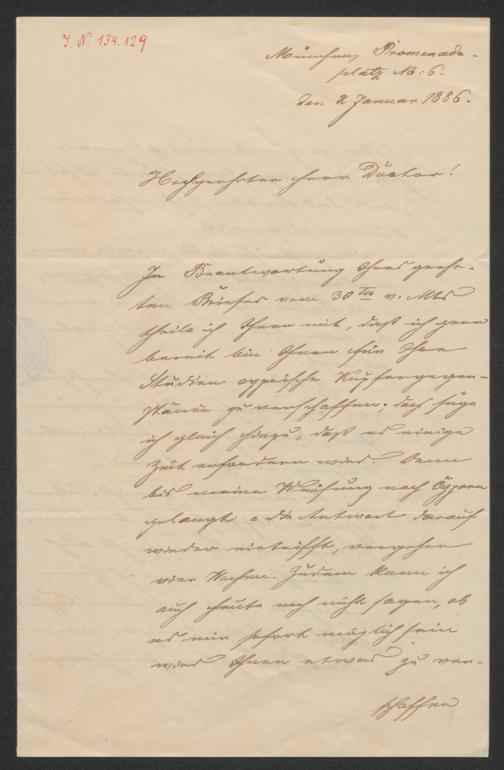 J. N. 134.129
München, Promenade-
platz No: 6.
den 2 Januar 1886.
Hochgeehrter Herr Doctor!
In Beantwortung Ihres geehr-
ten Briefes vom 30ten v. Mts
theile ich Ihnen mit, daß ich gern
bereit bin Ihnen für Ihre
Studien cyprische Kupfergegen-
stände zu verschaffen; doch füge
ich gleich hinzu, daß es einige
Zeit erfordern wird. Denn
bis meine Weisung nach Cypern
gelangt u die Antwort darauf
wieder eintrifft, vergehen
vier Wochen. Zudem kann ich
auch heute noch nicht sagen, ob
es mir sofort möglich sein
wird Ihnen etwas zu ver-
schaffen